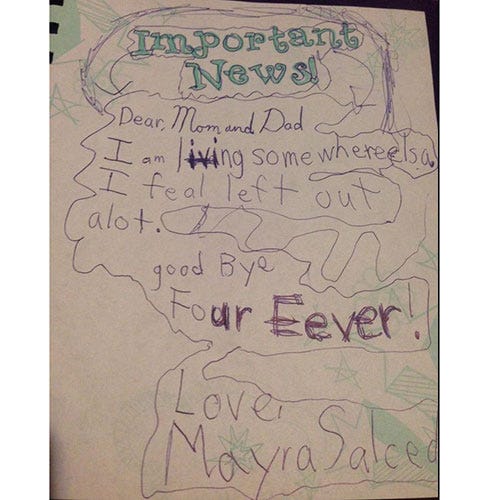 Important
News!
Dear, Mom and Dad
I am living somewhereelsa.
I feal left out
alot.
good Bye
Four Eever!
Love,
Mayra Salced